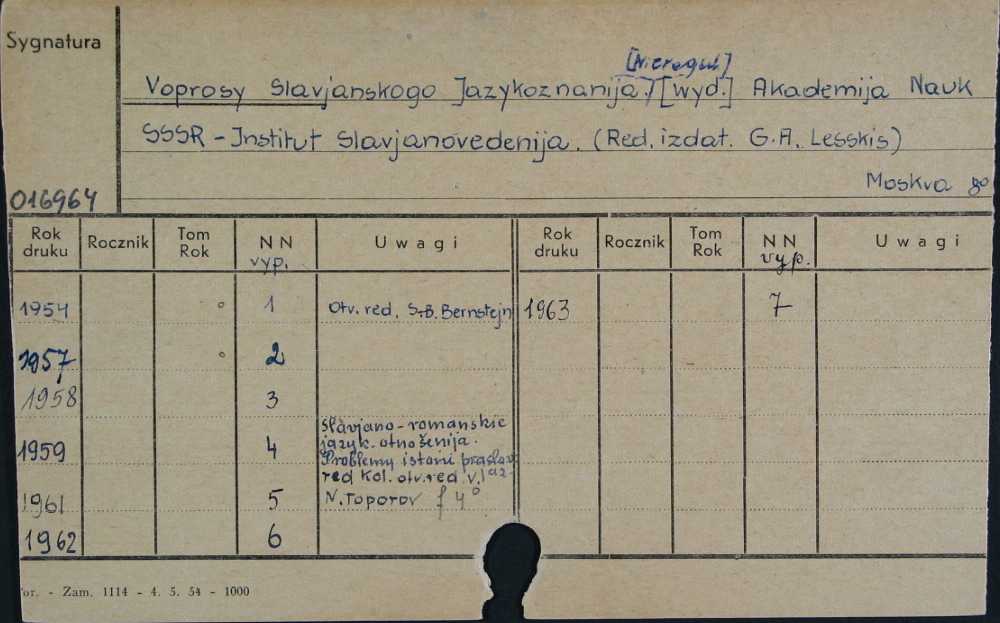 Sygnatura
[Nieregul]
Voprosy Slavjanskogo Jazykoznanija./[wyd.] Akademija Nauk
SSSR - Institut Slavjanovedenija. (Red. izdat. G.A. Lesskis)
Moskva 8°
016964
Rok druku Rocznik Tom Rok NN vyp. Uwagi Rok druku Rocznik Tom Rok NN vyp. Uwagi
1954 ° 1 Otv. red. S.B. Bernstejn 1963 7
1957 ° 2
1958 3
Slavjano-romanskie
1959 4 jazyk. otnošenija.
Problemy istorii praslav.
red kol. otv. red V.
1961 5 N. Toporov f 4°
1962 6
or. - Zam. 1114 - 4. 5. 54 - 1000